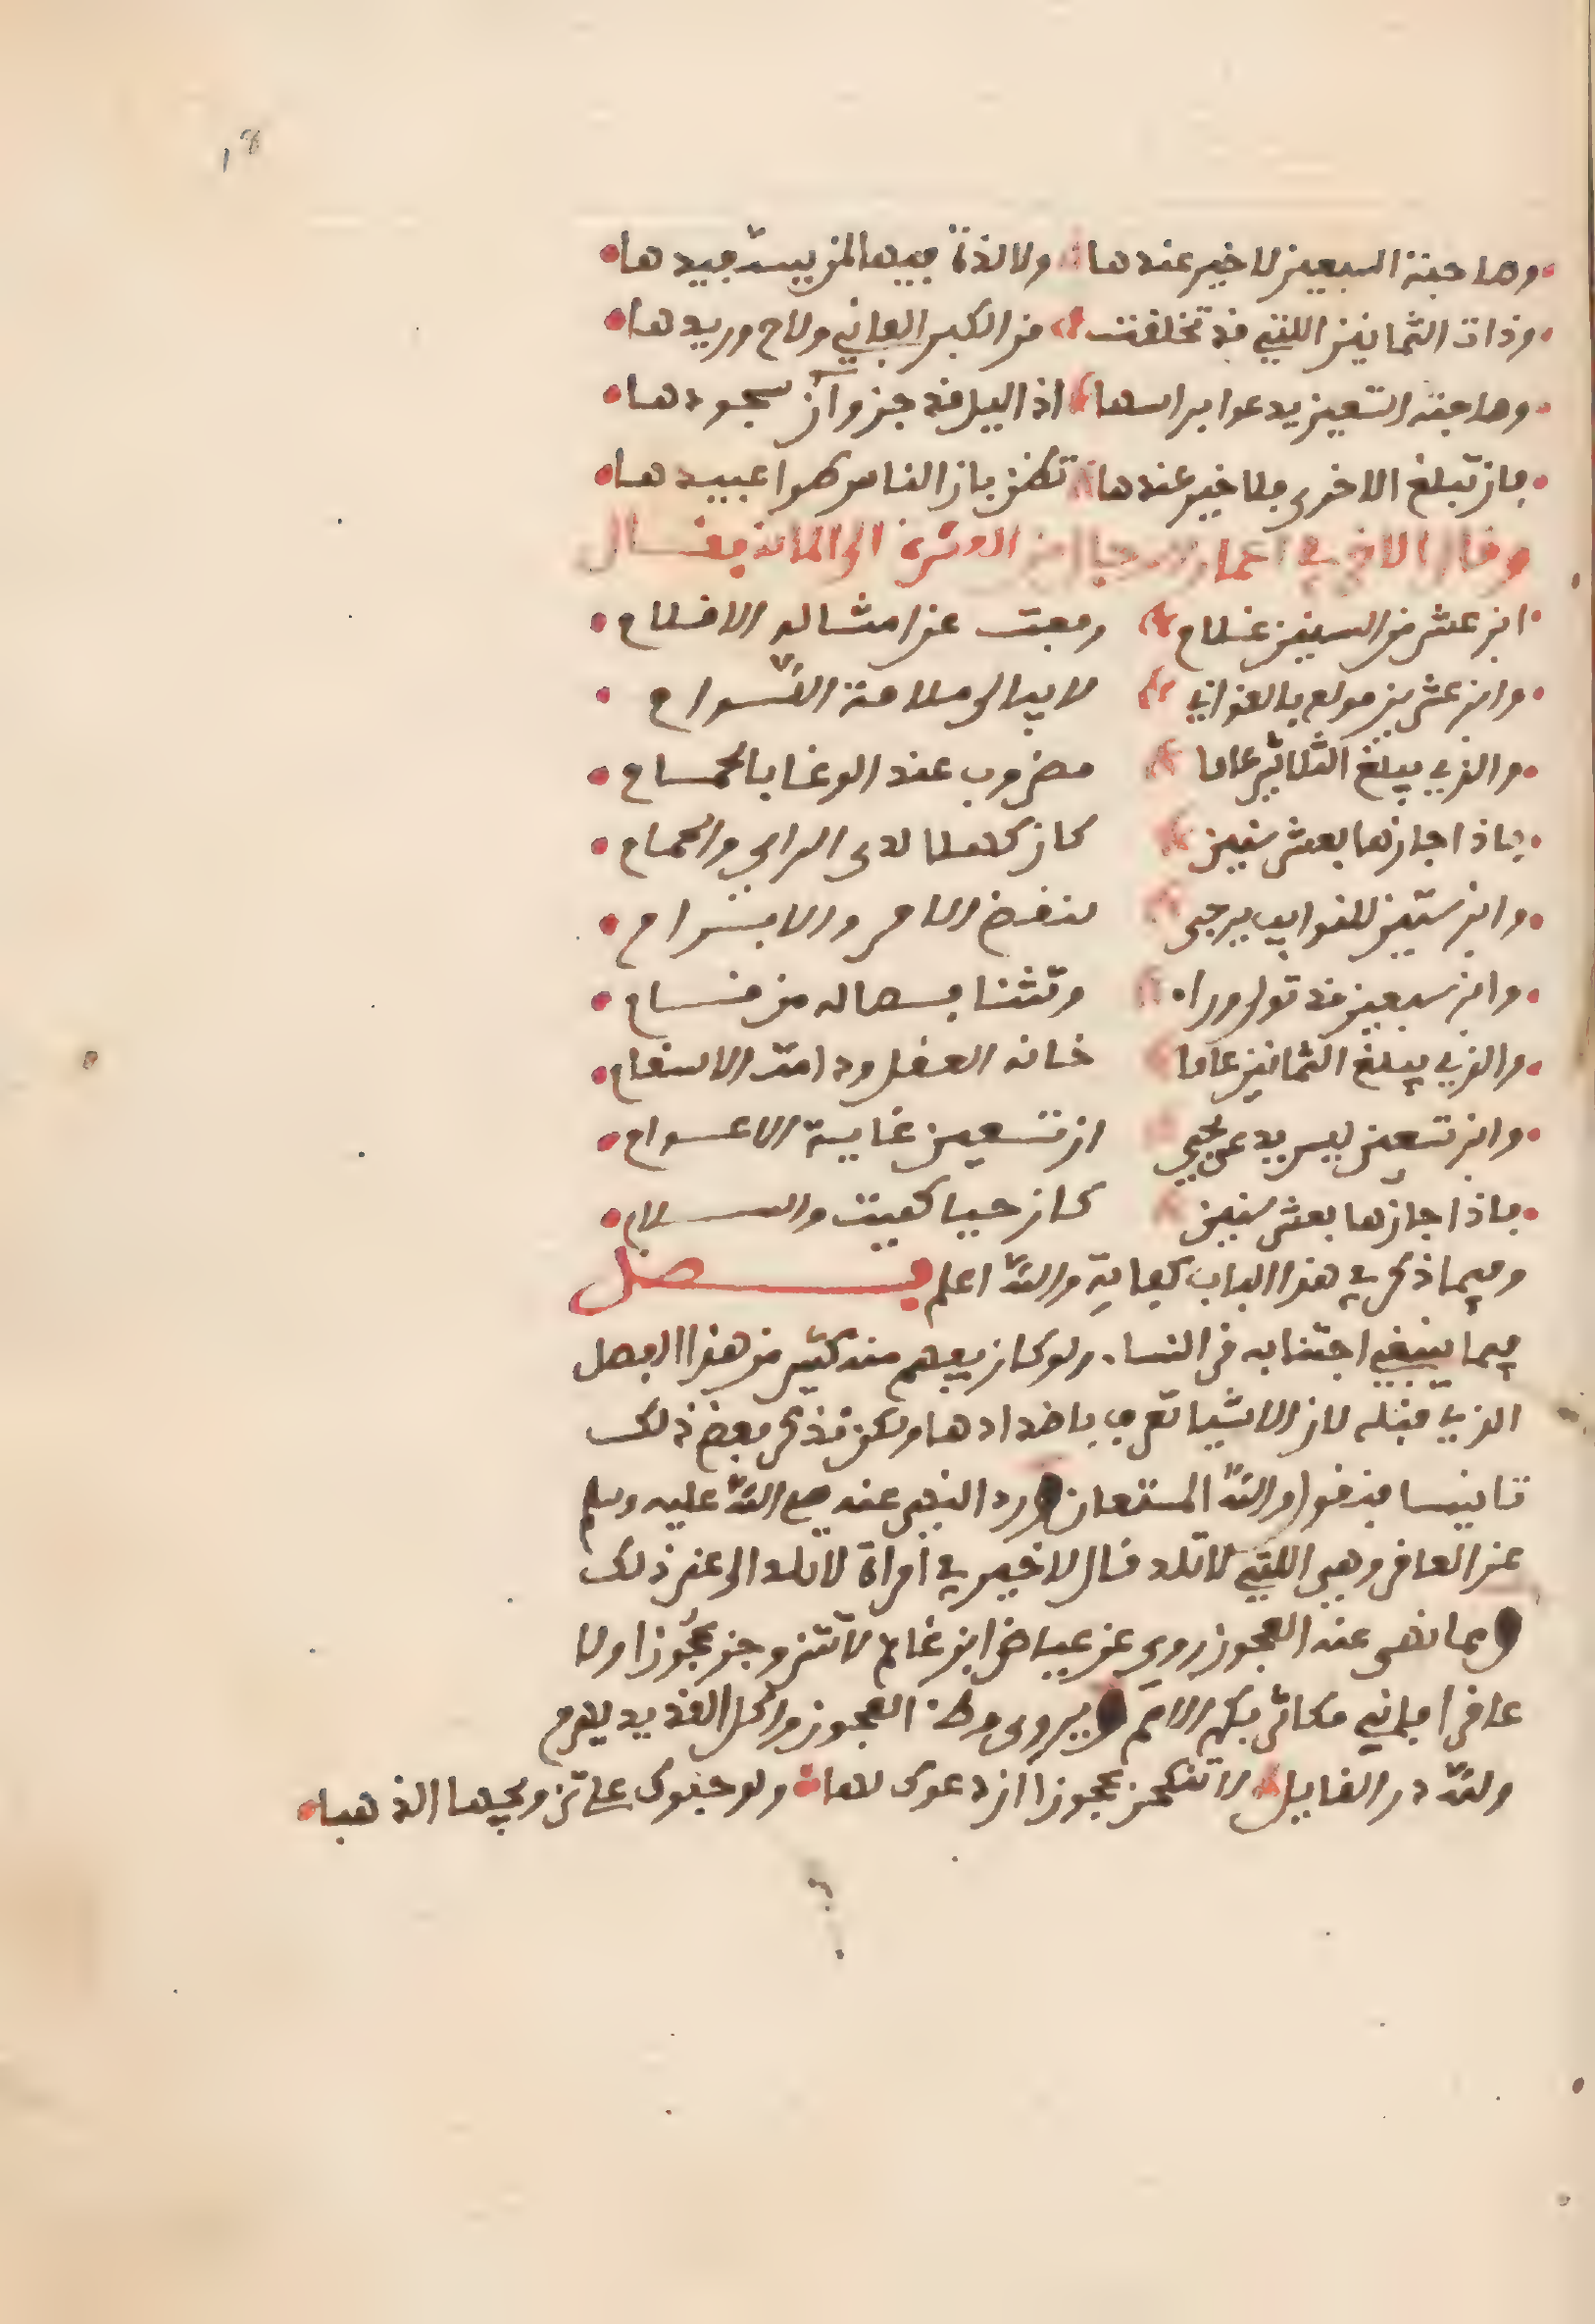 ١٨
وصاحبة السبعين لا خير عندها ولا لذة فيها لمن يستفيدها
وذات الثمانين اللتي قد تخلفت من الكبر الفاني ولاح وريدها
وصاحبة التسعين يدعوا براسها اذ اليل قد جن وآن سجودها
فان تبلغ الاخرى فلا خير عندها تظن بان الناس طوا عبيدها
وقال الاخر في اعمار الرجال من العشرة الى المائة فقال
ابن عشر من السنين غلام رفعت عن امثاله الاقلام
وابن عشرين مولع بالغواني لا يبالي ملامة اللوام
والذي يبلغ الثلاثين عاما مضروب عند الوغا بالحسام
فاذا جازها بعشر سنين كان كهلا لدى الراي والحمام
وابن ستين للنوايب يرجى لنقض الامر والابرام
وابن سبعين قد تولى وراه وتثنا فما له من قسام
والذي يبلغ الثمانين عاما خانه العقل ودامت الاسقام
وابن تسعين ليس يدعى بحي ان تسعين غاية الاعوام
فاذا جازها بعشر سنين كان حيا كميت والسلام
وفيما ذكر في هذا الباب كفاية والله اعلم فصل
فيما ينبغي اجتنابه من النسا ولو كان يفهم منه كثير من هذا الفصل
الذي قبله لان الاشيا تعرف باضدادها ولكن نذكر بعض ذلك
تانيسا فنقول والله المستعان ورد النهي عنه صلى الله عليه وسلم
عن العاقر وهي اللتي لا تلد قال لا خير في امراة لا تلد الى غير ذلك
ومما نهى عنه العجوز روي عن عياض ابن غانم لا تتزوجن عجوزا ولا
عاقرا فاني مكاثر بكم الامم ويروى وطء العجوز واكل القديد يهرم
ولله در القايل لا تنكحن عجوزا ان دعوك لها ولو حبوك على تزويجها الذهبا